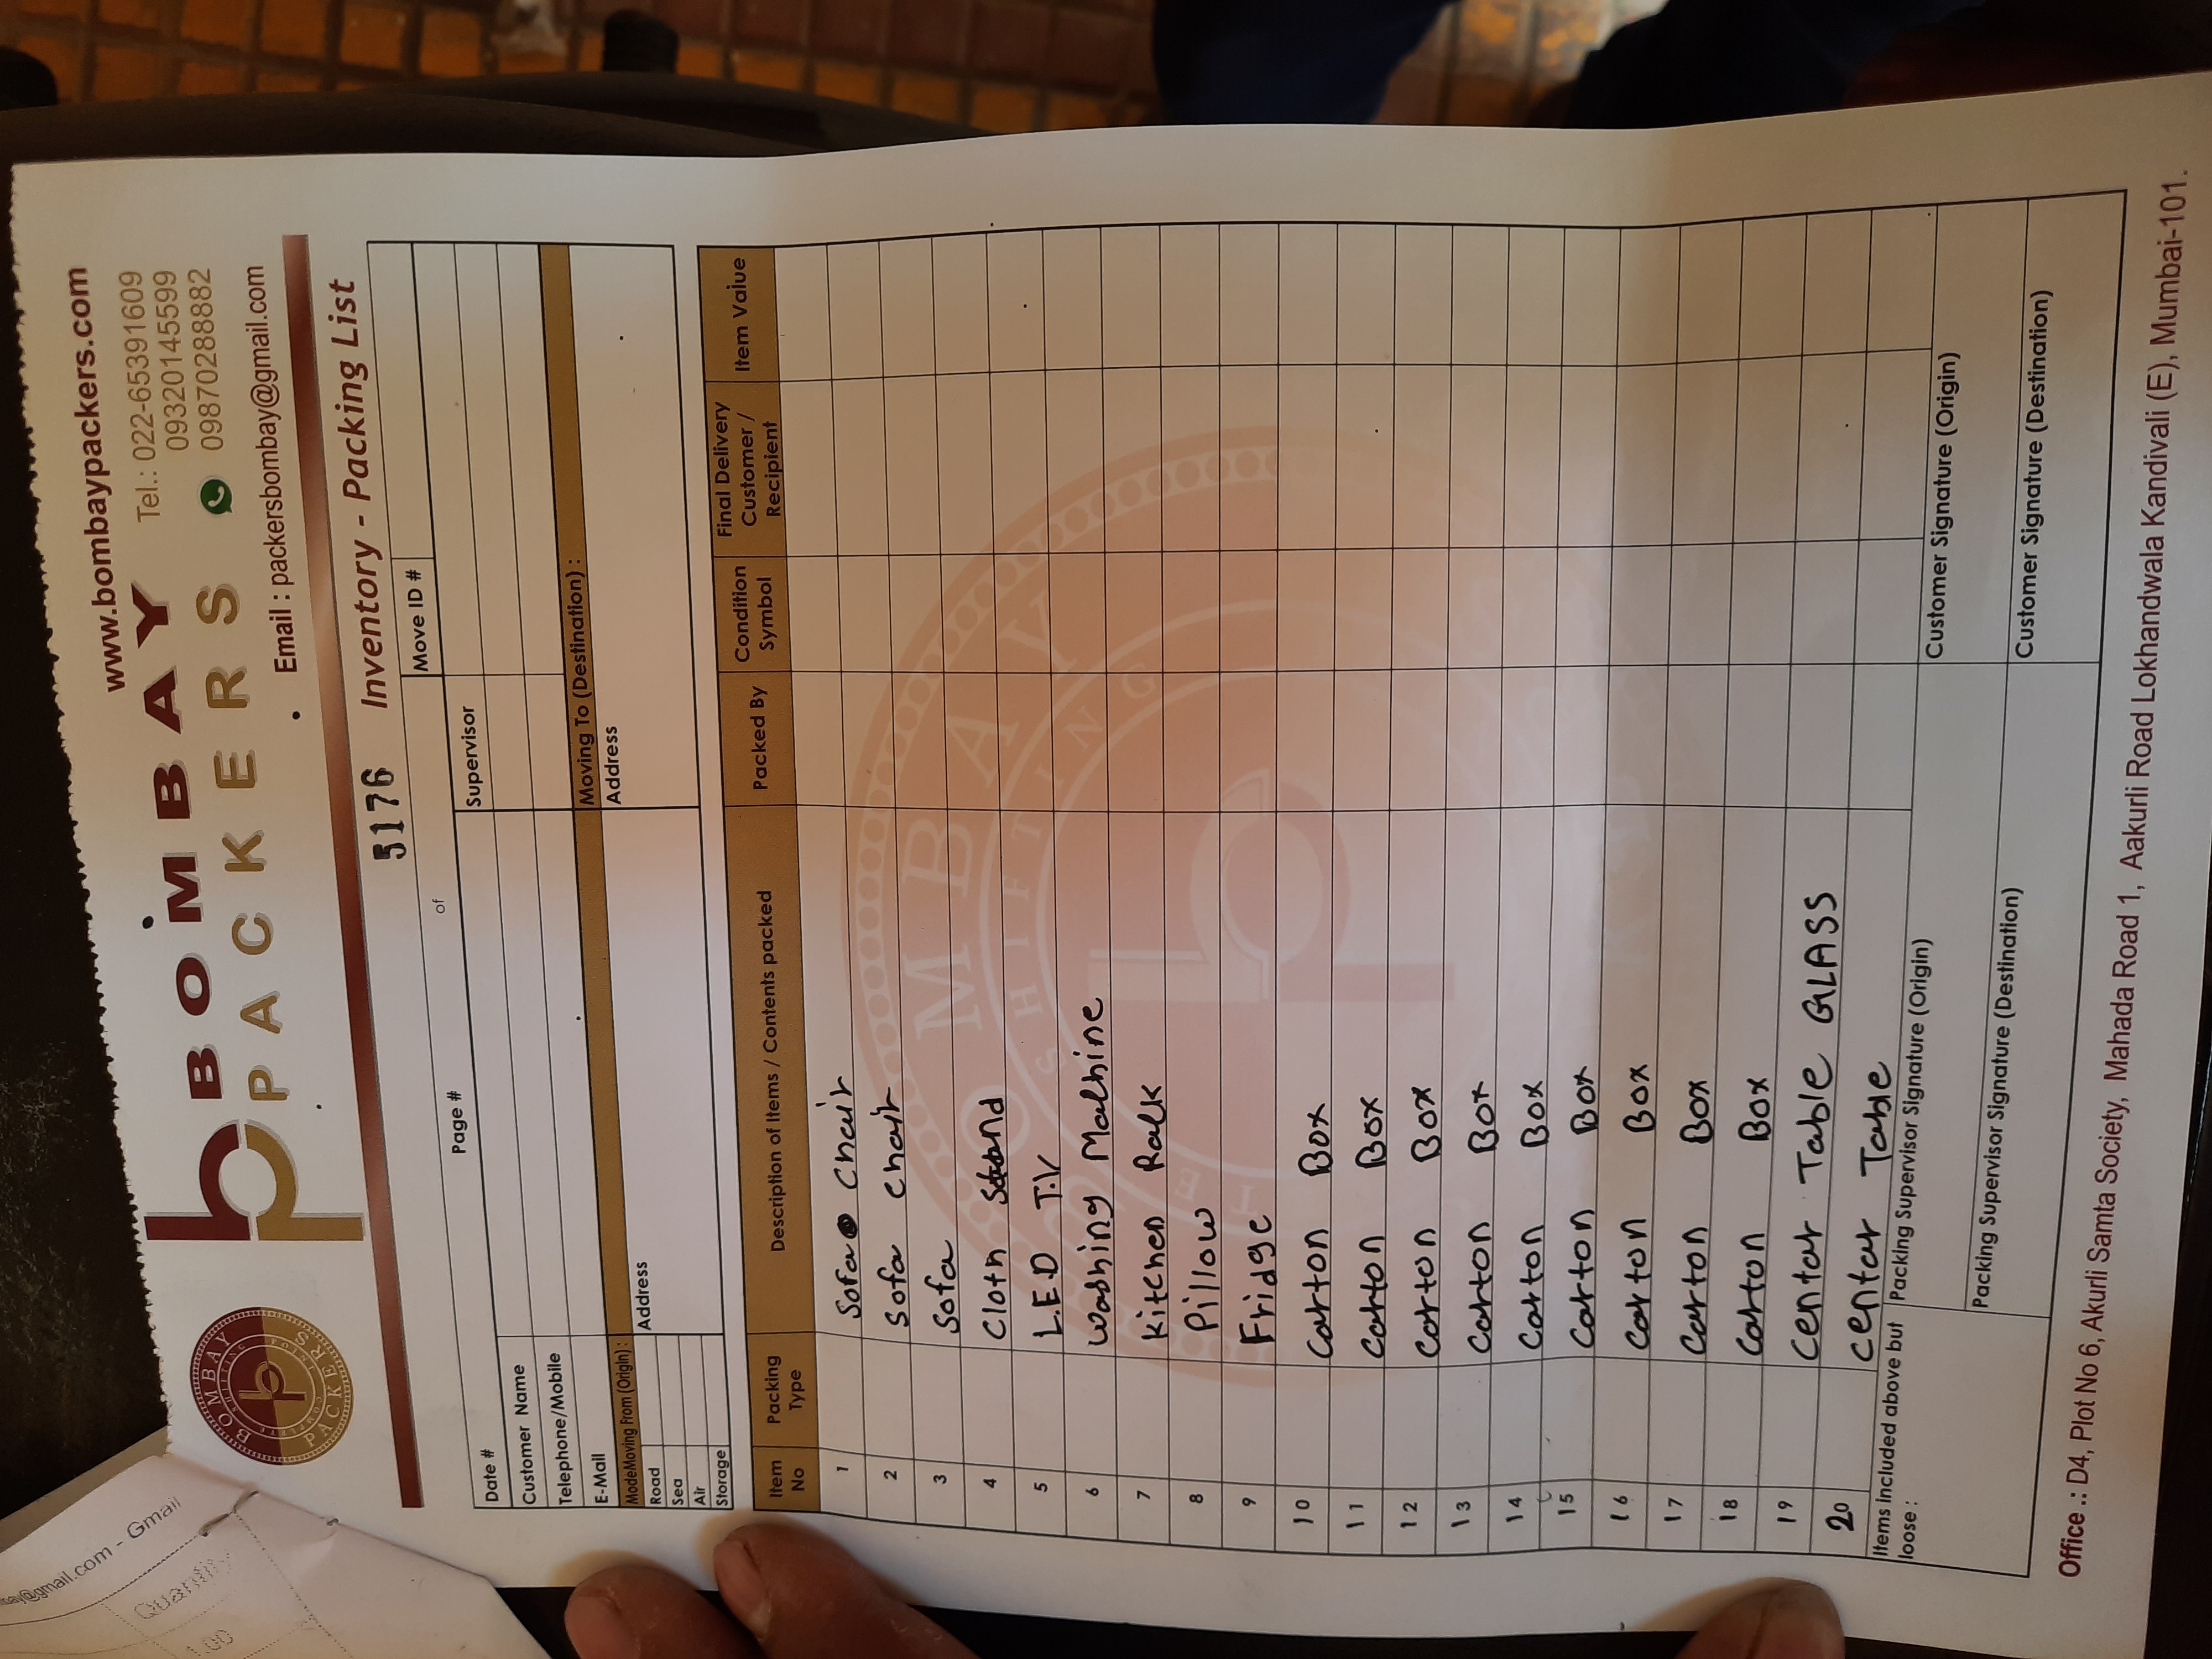 www.bombaypackers.com
BOMBAY
PACKERS
Tel.: 022-65391609
09320145599
09870288882
Email : packersbombay@gmail.com
BOMBAY
PACKERS
5176 Inventory - Packing List
Page # of Move ID #
Date # Supervisor
Customer Name
Telephone/Mobile
E-Mail
Mode Moving From (Origin) : Moving To (Destination) :
Road Address Address
Sea
Air
Storage
Item No Packing Type Description of Items / Contents packed Packed By Condition Symbol Final Delivery Customer / Recipient Item Value
1 Sofa Chair
2 Sofa chair
3 Sofa
4 Cloth Stand
5 L.E.D T.V
6 Washing Malhine
7 Kitchen Ralk
8 Pillow
9 Fridge
10 Carton Box
11 Carton Box
12 Carton Box
13 Carton Box
14 Carton Box
15 Carton Box
16 Carton Box
17 Carton Box
18 Carton Box
19 Centar Table GLASS
20 Centar Table
Items included above but loose :
Packing Supervisor Signature (Origin) Customer Signature (Origin)
Packing Supervisor Signature (Destination) Customer Signature (Destination)
Office .: D4, Plot No 6, Akurli Samta Society, Mahada Road 1, Aakurli Road Lokhandwala Kandivali (E), Mumbai-101.
@gmail.com - Gmail
Quantity
1.00